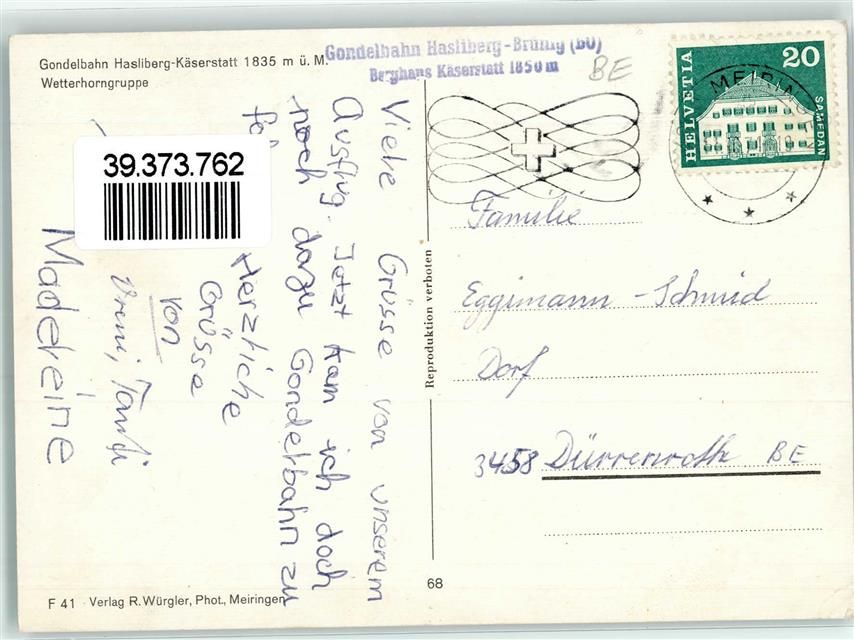 Gondelbahn Hasliberg-Käserstatt 1835 m ü. M.
Wetterhorngruppe
Gondelbahn Hasliberg-Brünig (BO)
Berghaus Käserstatt 1850 m
BE
HELVETIA
20
SAMEDAN
MEIRINGEN
39.373.762
Viele Grüsse von unserem
Ausflug. Jetzt kam ich doch
noch dazu Gondelbahn zu
Herzliche
Grüsse
von
Vreni,
Madeleine
Reproduktion verboten
Familie
Eggimann-Schmid
Dorf
3458 Dürrenroth BE
68
F 41 · Verlag R. Würgler, Phot., Meiringen